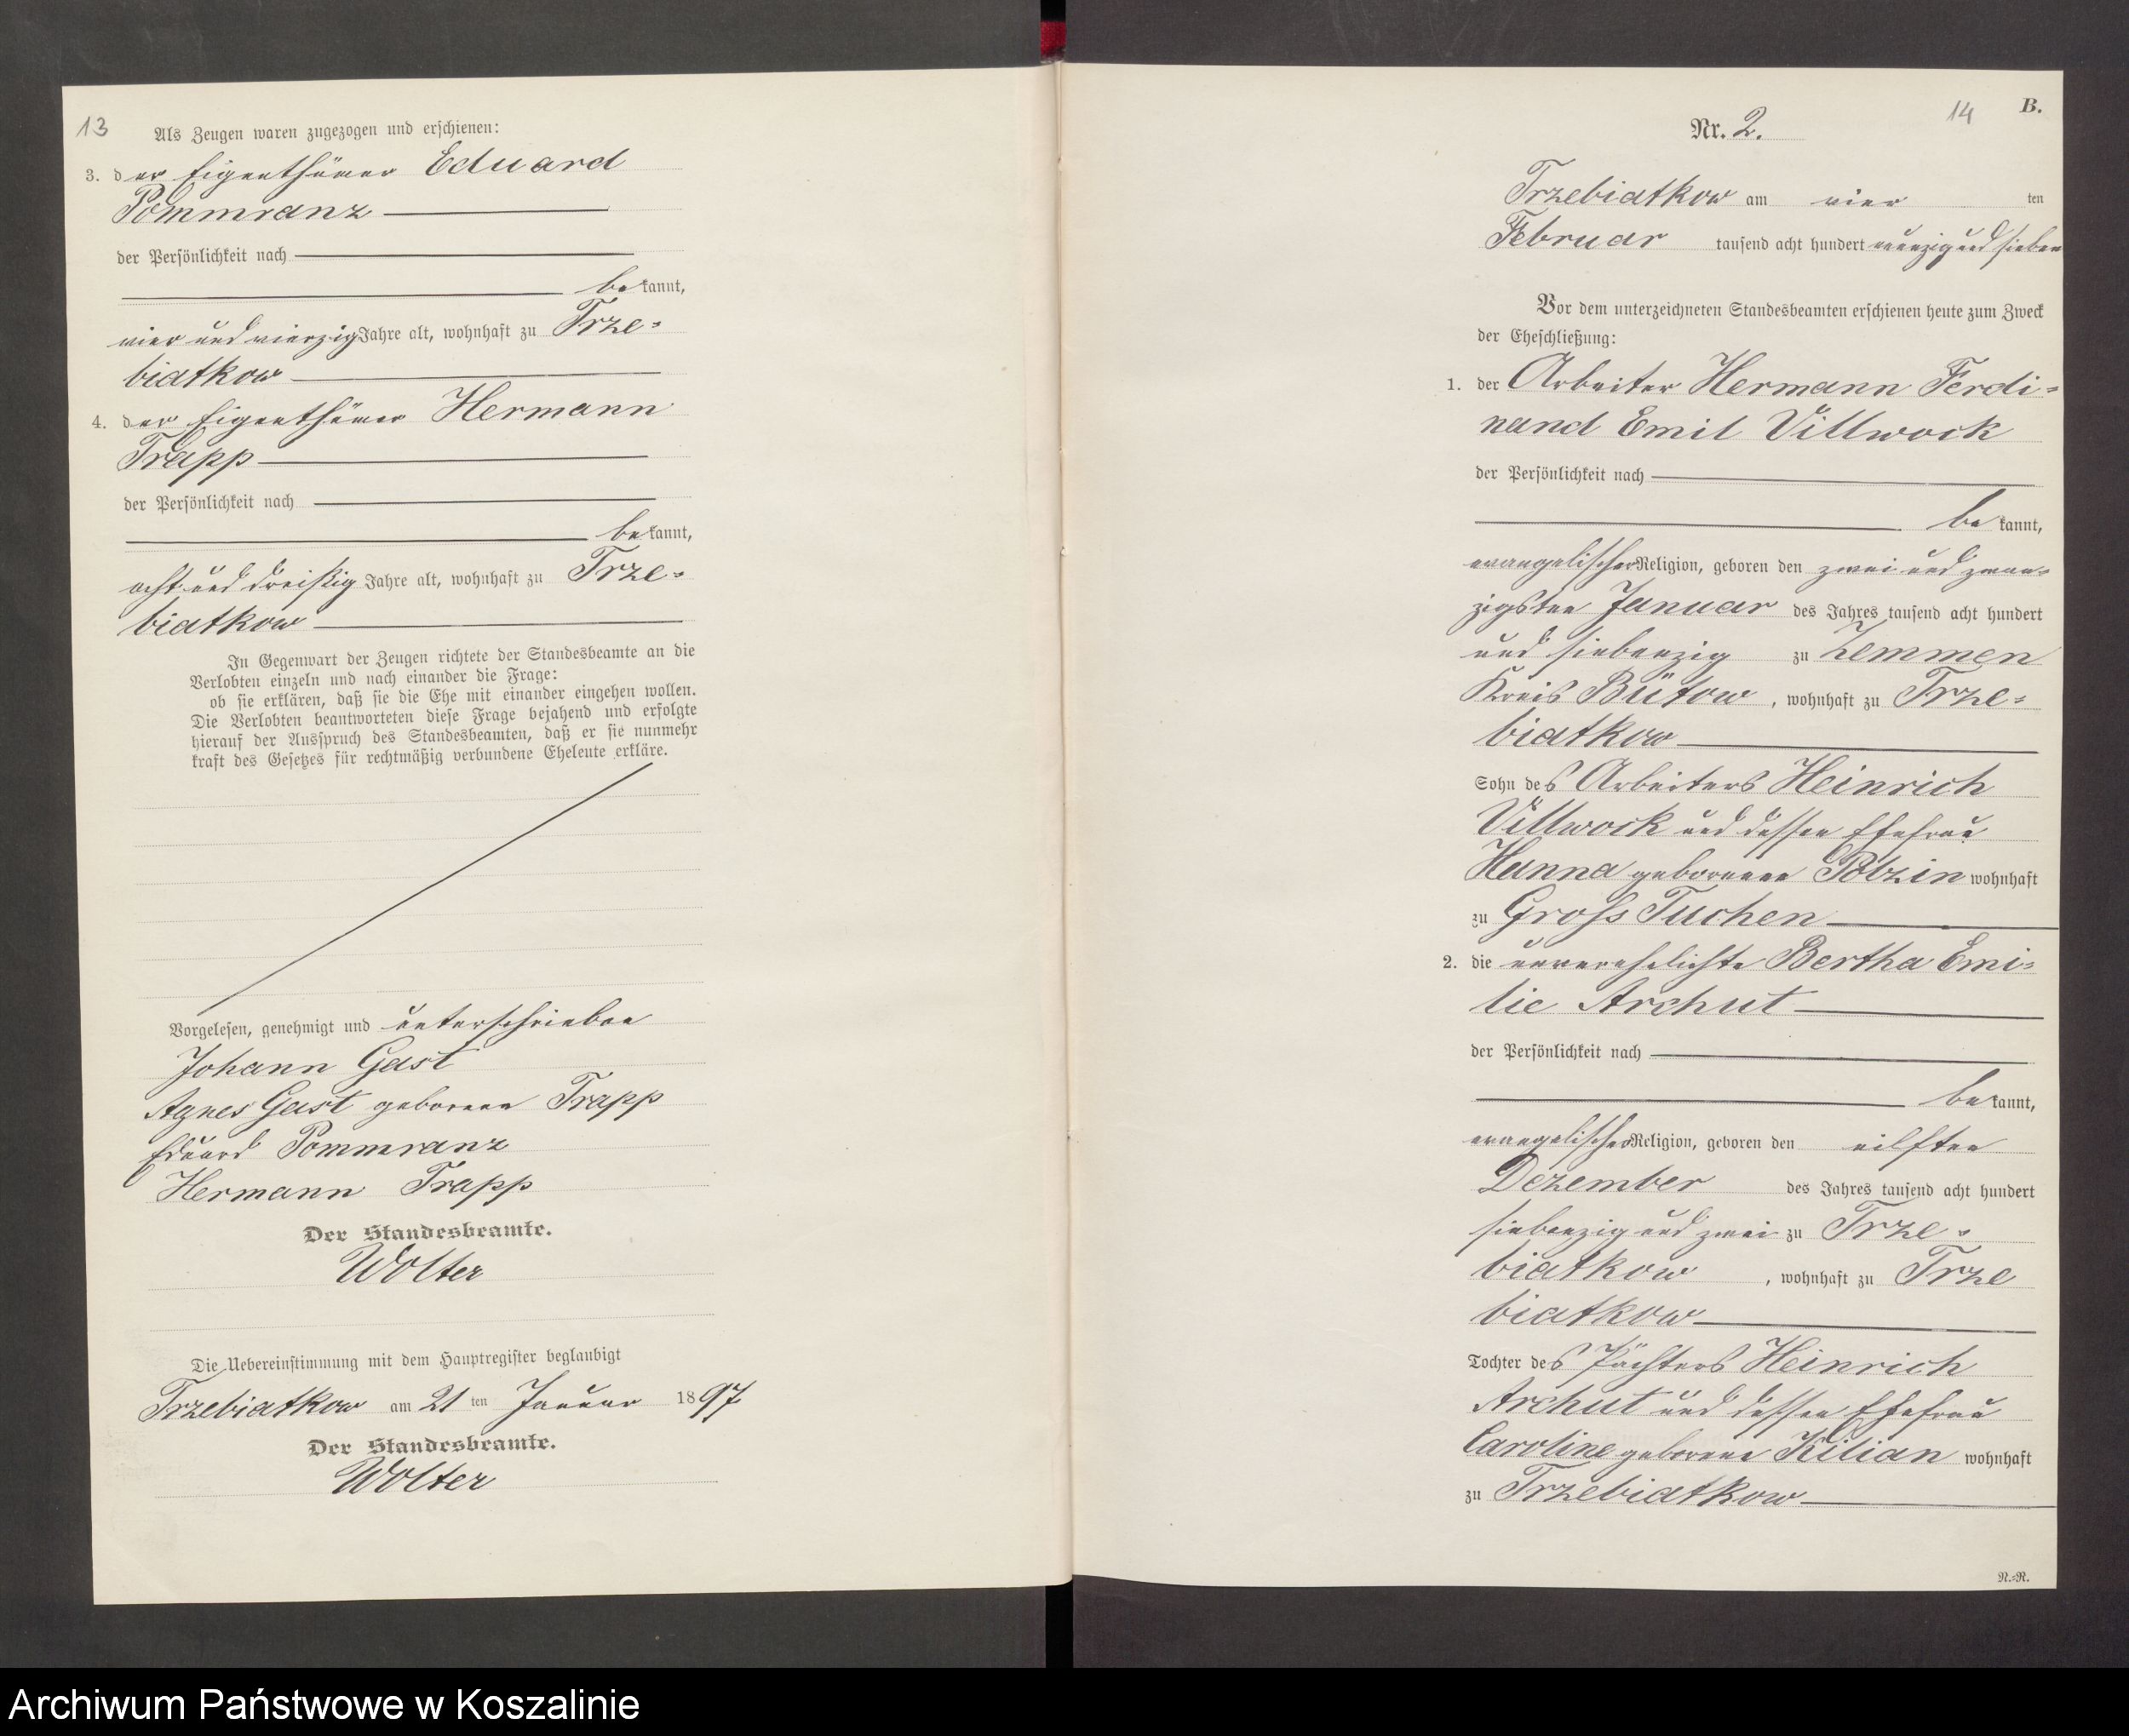 13
Als Zeugen waren zugezogen und erschienen:
3. der Eigenthümer Eduard
Pommranz
der Persönlichkeit nach
bekannt,
vier und vierzig Jahre alt, wohnhaft zu Trze=
biatkow
4. der Eigenthümer Hermann
Trapp
der Persönlichkeit nach
bekannt,
acht und dreißig Jahre alt, wohnhaft zu Trze=
biatkow
In Gegenwart der Zeugen richtete der Standesbeamte an die
Verlobten einzeln und nach einander die Frage:
ob sie erklären, daß sie die Ehe mit einander eingehen wollen.
Die Verlobten beantworteten diese Frage bejahend und erfolgte
hierauf der Ausspruch des Standesbeamten, daß er sie nunmehr
kraft des Gesetzes für rechtmäßig verbundene Eheleute erkläre.
Vorgelesen, genehmigt und unterschrieben
Johann Gast
Agnes Gast geborene Trapp
Eduard Pommranz
Hermann Trapp
Der Standesbeamte.
Wolter
Die Uebereinstimmung mit dem Hauptregister beglaubigt
Trzebiatkow am 21 ten Januar 1897
Der Standesbeamte.
Wolter
14 B.
Nr. 2.
Trzebiatkow am vier ten
Februar tausend acht hundert neunzig und sieben
Vor dem unterzeichneten Standesbeamten erschienen heute zum Zweck
der Eheschließung:
1. der Arbeiter Hermann Ferdi=
nand Emil Villwock
der Persönlichkeit nach
bekannt,
evangelischer Religion, geboren den zwei und zwan=
zigsten Januar des Jahres tausend acht hundert
und siebenzig zu Zemmen
Kreis Bütow, wohnhaft zu Trze=
biatkow
Sohn des Arbeiters Heinrich
Villwock und dessen Ehefrau
Hanna geborenen Polzin wohnhaft
zu Gross Tuchen
2. die unverehelichte Bertha Emi=
lie Archut
der Persönlichkeit nach
bekannt,
evangelischer Religion, geboren den eilften
Dezember des Jahres tausend acht hundert
siebenzig und zwei zu Trze=
biatkow, wohnhaft zu Trze
biatkow
Tochter des Pächters Heinrich
Archut und dessen Ehefrau
Caroline geborene Kilian wohnhaft
zu Trzebiatkow
N.=R.
Archiwum Państwowe w Koszalinie